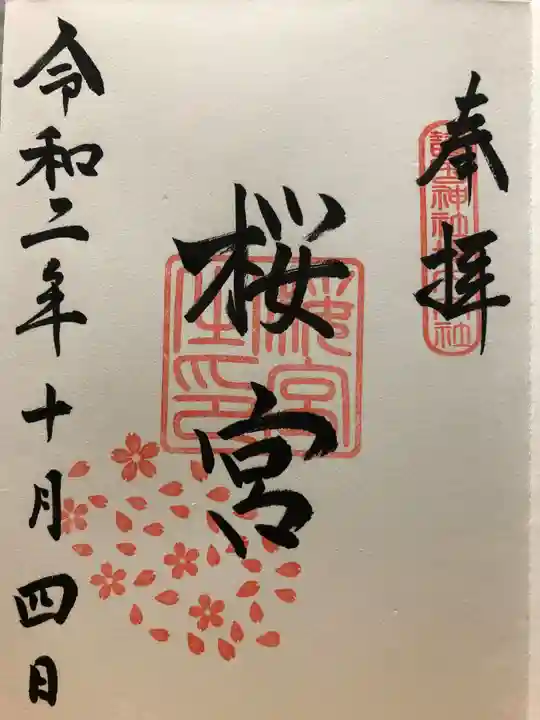 奉拝
桜宮
令和二年十月四日